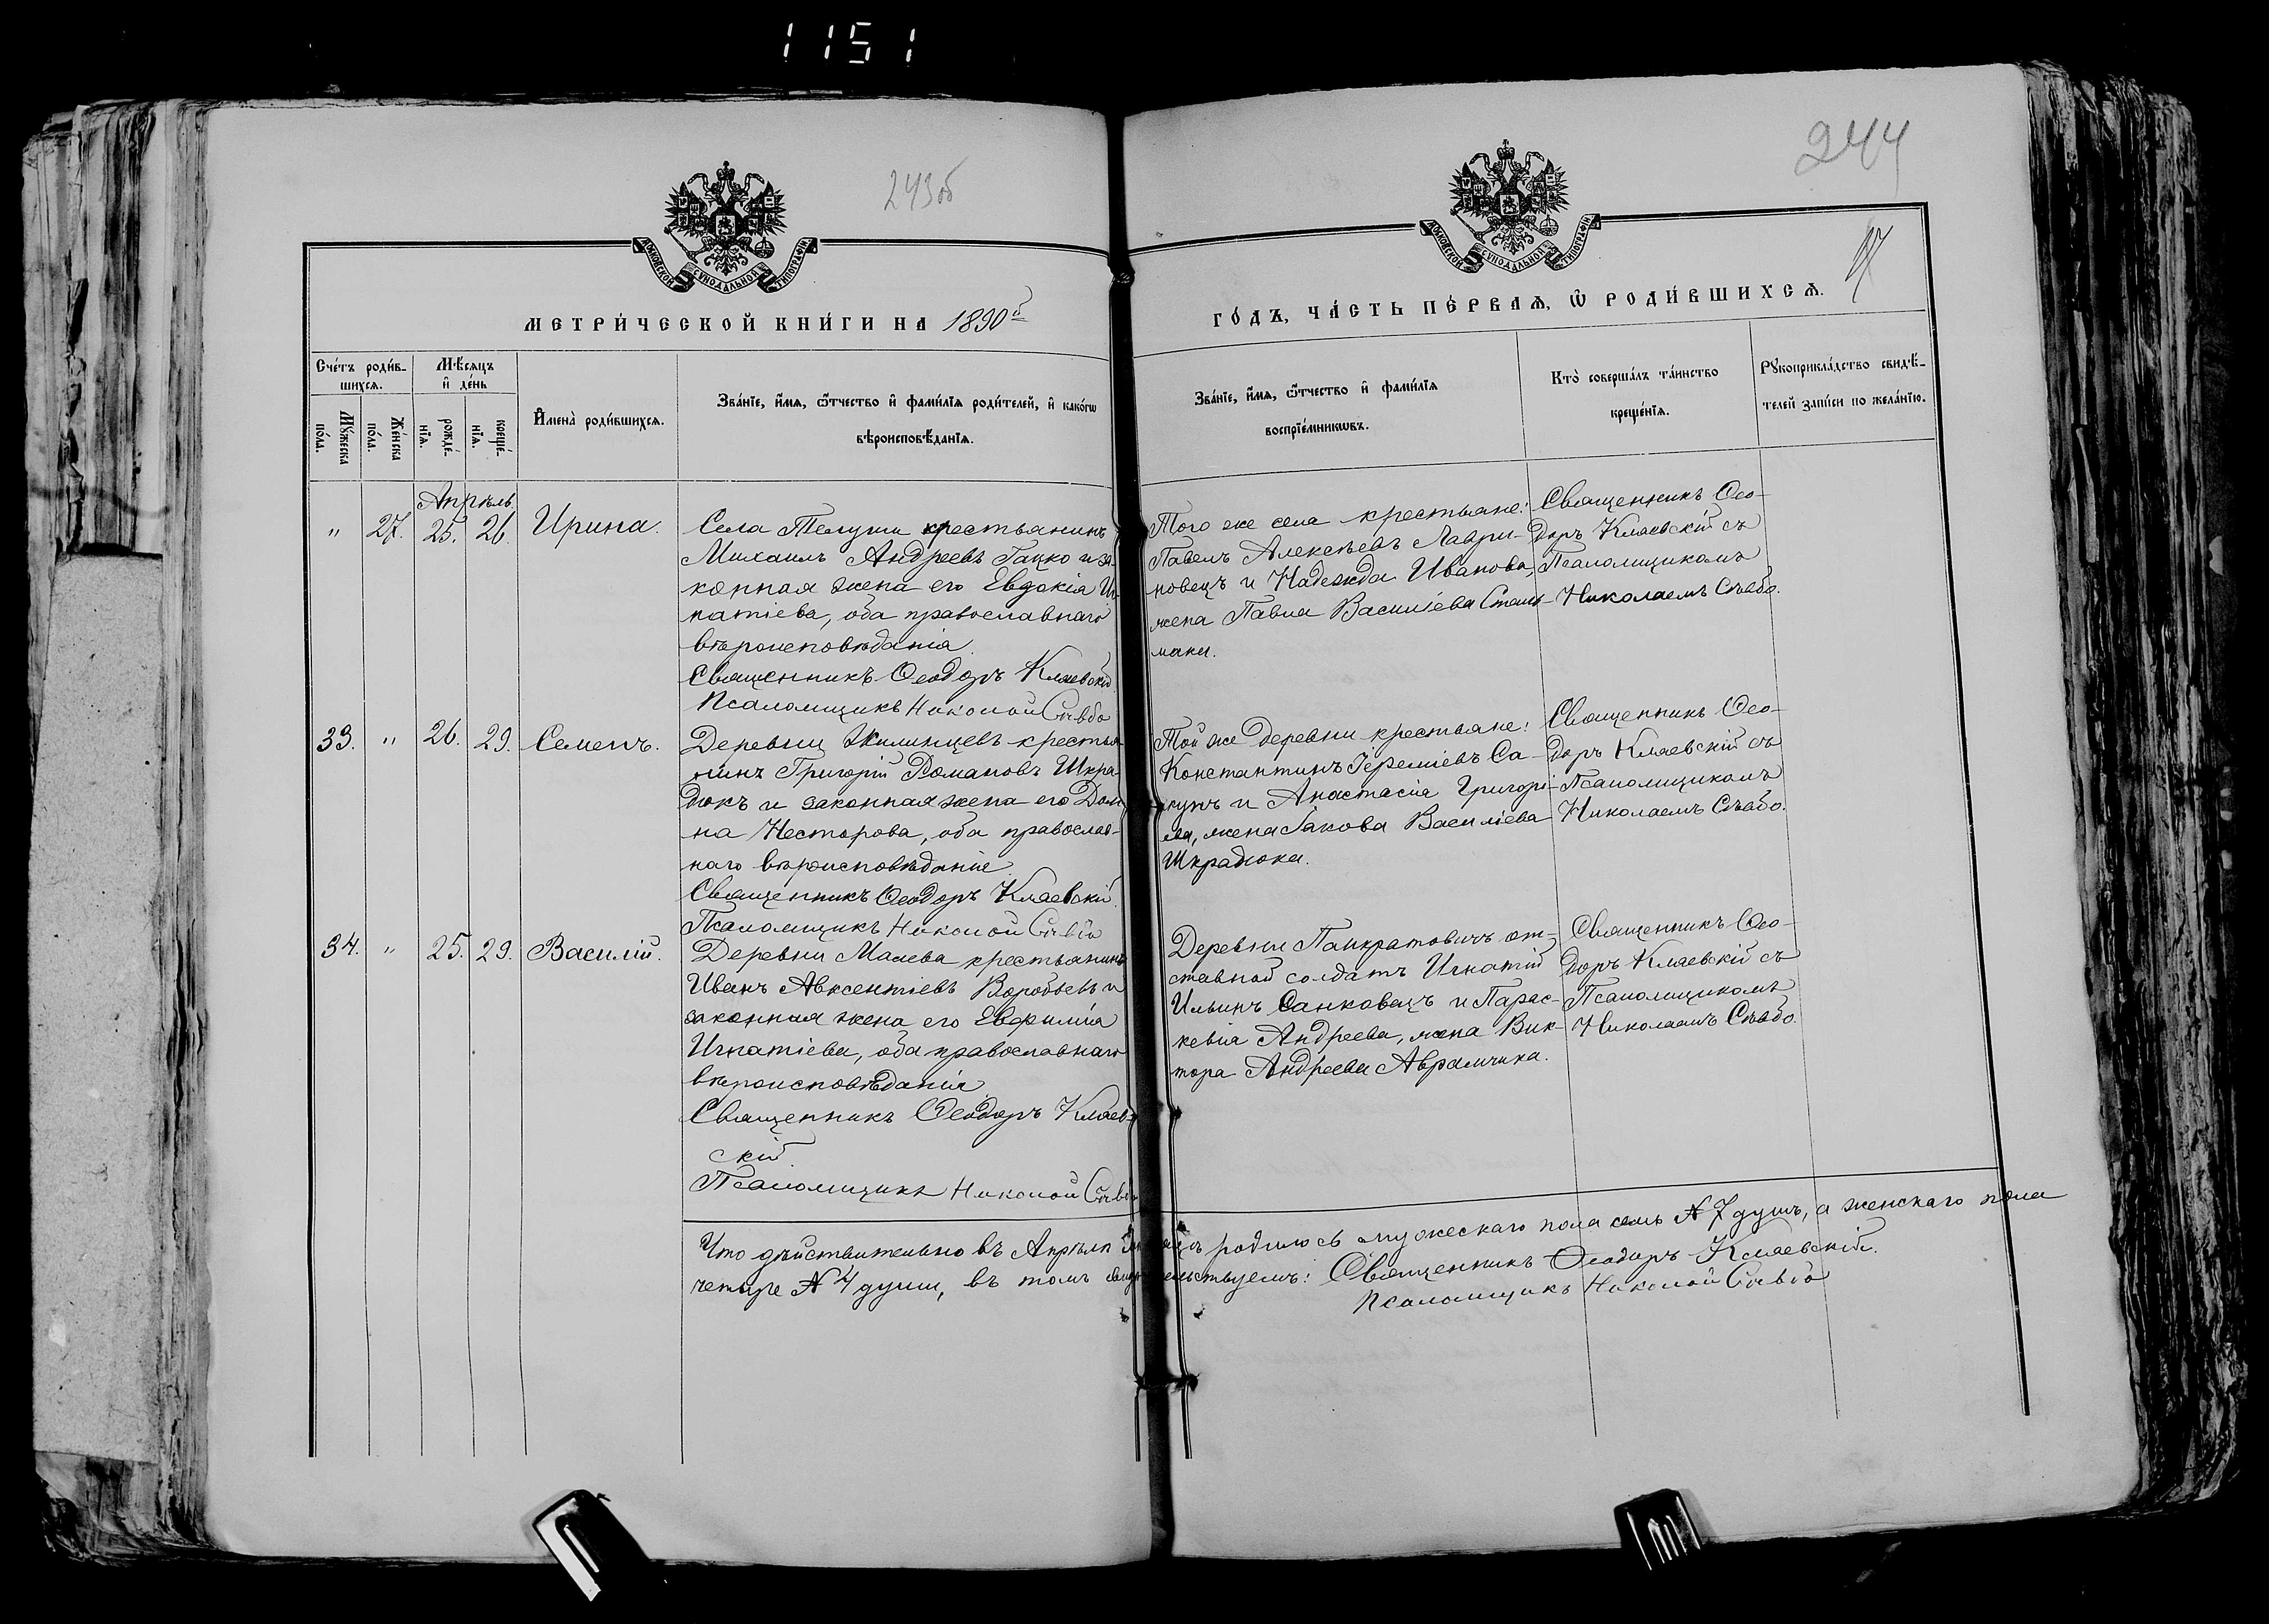 1151
243об
244
МОСКОВСКОЙ СѴНОДАЛЬНОЙ ТИПОГРАФІИ
МОСКОВСКОЙ СѴНОДАЛЬНОЙ ТИПОГРАФІИ
МЕТРИ́ЧЕСКОЙ КНИ́ГИ НА 1890й
ГО́ДЪ, ЧА́СТЬ ПЕ́РВАѦ, Ѽ РОДИ́ВШИХСѦ.
Сче́тъ роди́в-
шихсѧ.
Мѣ́сѧцъ
и҆ де́нь
Мꙋ́жеска
по́ла.
Же́нска
по́ла.
рожде́-
нїѧ.
креще́-
нїѧ.
И҆мена̀ роди́вшихсѧ.
Зва́нїе, и҆́мѧ, ѻ҆́тчество и҆ фами́лїѧ роди́телей, и҆ како́гѡ
вѣроисповѣ́данїѧ.
Зва́нїе, и҆́мѧ, ѻ҆́тчество и҆ фами́лїѧ
воспрїе́мникѡвъ.
Кто̀ соверша́лъ та́инство
креще́нїѧ.
Рꙋкоприкла́дство свидѣ́-
телей за́писи по жела́нїю.
Апрѣль
" 27. 25. 26. Ирина.
Села Телуши крестьянинъ
Михаилъ Андреевъ Гацко и за-
конная жена его Евдокія Иг-
натіева, оба православнаго
вѣроисповѣданія.
Священникъ Ѳеодоръ Кляевскій
Псаломщикъ Николай Съвбо
Того же села крестьяне:
Павелъ Алексѣевъ Лаври-
новецъ и Надежда Иванова,
жена Павла Василіева
Священникъ Ѳео-
доръ Кляевскій съ
Псаломщикомъ
Николаемъ Съвбо.
33. " 26. 29. Семенъ.
Деревни Жилинцевъ крестья
нинъ Григорій Романовъ Шкра-
дюкъ и законная жена его Дом-
на Несторова, оба православ-
наго вѣроисповѣданіе
Священникъ Ѳеодоръ Кляевскій.
Псаломщикъ Николай Съвбо
Той же деревни крестьяне:
Константинъ Іереміевъ Са-
кунъ и Анастасія Григорі-
ева, жена Іакова Василіева
Шкрадюка.
Священникъ Ѳео-
доръ Кляевскій съ
Псаломщикомъ
Николаемъ Съвбо.
34. " 25. 29. Василій.
Деревни Малева крестьянинъ
Иванъ Авксентіевъ Воробьевъ и
законная жена его Евфимія
Игнатіева, оба православнаго
вѣроисповѣданія
Священникъ Ѳеодоръ Кляев-
скій.
Псаломщикъ Николай Съвбо
Деревни Панкратовичъ от-
ставной солдатъ Игнатій
Ильинъ Санковецъ и Парас-
кевія Андреева, жена Вик-
тора Андреева Аврамчика.
Священникъ Ѳео-
доръ Кляевскій съ
Псаломщикомъ
Николаемъ Съвбо.
Что дѣйствительно въ Апрѣлѣ мѣсяцѣ родилось мужескаго пола семь № 7 душъ, а женскаго пола
четыре № 4 души, въ томъ свидѣтельствуемъ: Священникъ Ѳеодоръ Кляевскій.
Псаломщикъ Николай Съвбо